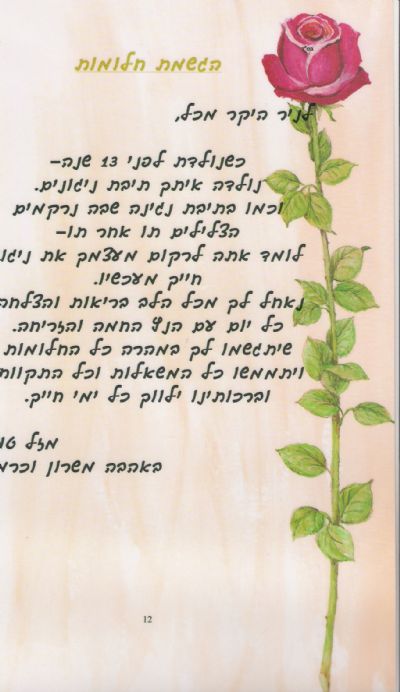 הגשמת חלומות
לניר היקר מכל,
כשנולדת לפני 13 שנה-
נולדה איתך תיבת ניגונים.
וכמו בתיבת נגינה שבה נרקמים
הצלילים תו אחר תו-
לומד אתה לרקום מעצמך את ניגו
חייך מעכשיו.
נאחל לך מכל הלב בריאות והצלחה
כל יום עם הנץ החמה והזריחה.
שיתגשמו לך במהרה כל החלומות
ויתממשו כל המשאלות וכל התקוות
וברכותינו ילווך כל ימי חייך.
מזל טו
באהבה משרון וכרמ
12